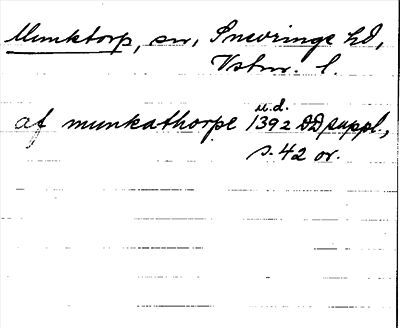 Munktorp, sn, Snevringe hd,
Vstm. l.
u.d.
af munkathorpe 1392 DD suppl.,
s. 42 or.